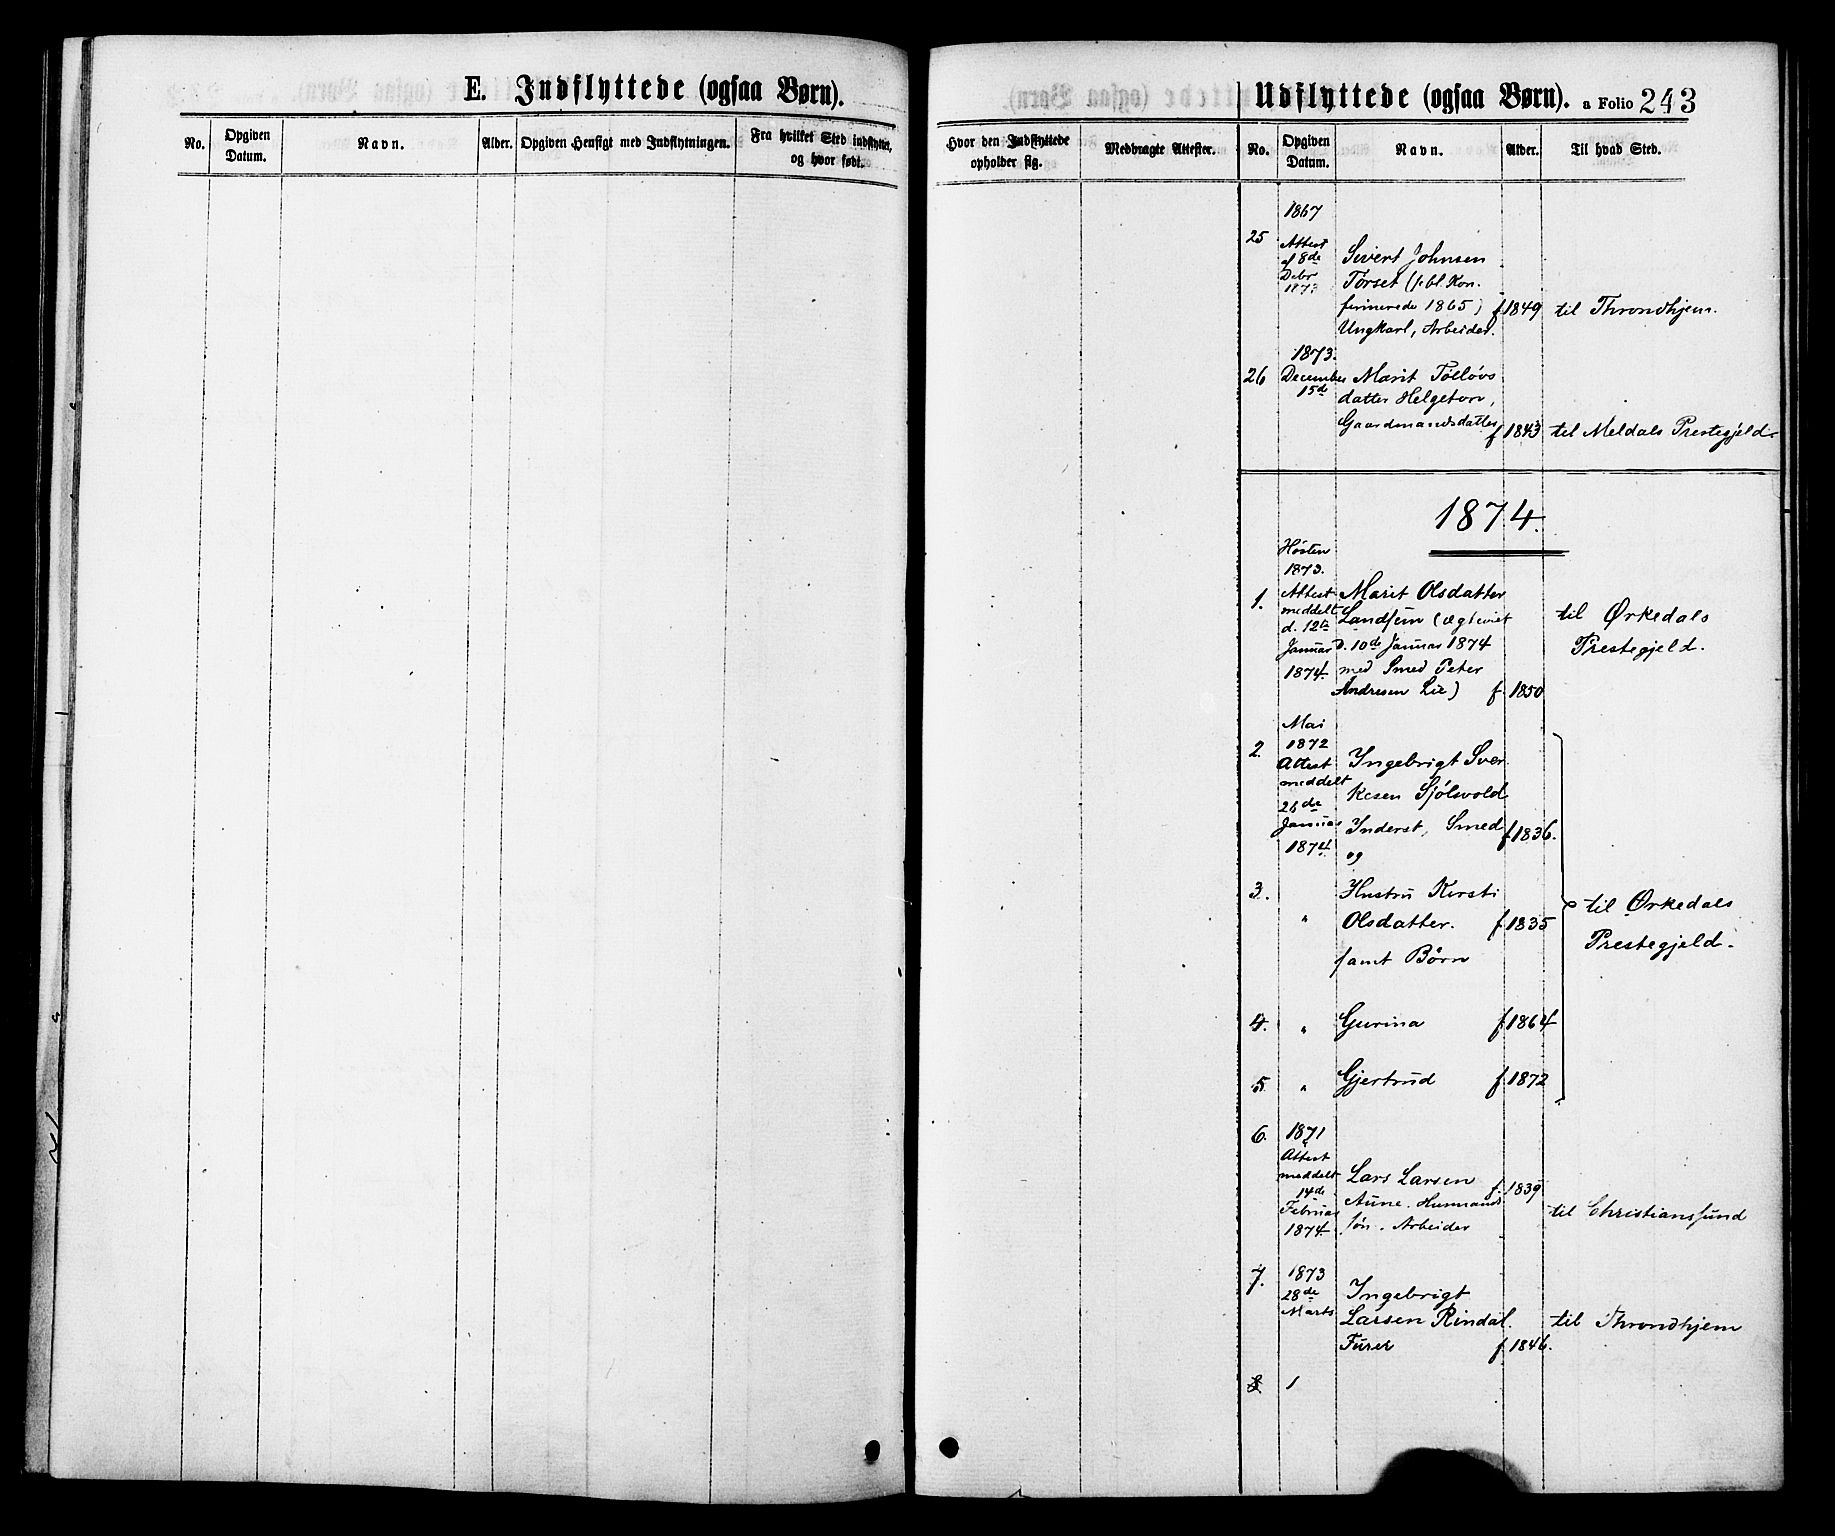 E. Indflyttede (ogsaa Børn).
No.
Opgiven Datum.
Navn.
Alder.
Opgiven Hensigt med Indflytningen.
Fra hvilket Sted indflyttet, og hvor født.
Udflyttede (ogsaa Børn). a Folio 243
Hvor den Indflyttede opholder sig.
Medbragte Attester.
No.
Opgiven Datum.
Navn.
Alder.
Til hvad Sted.
1867
25 Attest Sivert Johnsen
af 8de
Debr Törset (
1873
firmerede 1865) f. 1849 til Throndhjem.
Ungkarl, Arbeider.
1873.
26 December Marit
15de datter Helgeton,
Gaardmandsdatter f 1843 til Meldals Prestegjeld.
1874.
Hösten
1873.
1. Attest Marit Olsdatter
meddelt Landsem (ægteviet til Ørkedals
d. 12te
Januar d. 10de Januar 1874 Prestegjeld.
1874. med Smed Peter
Andresen Lie) f. 1850
Mai
2. 1872
Attest Ingebrigt Sver
meddelt kesen Sjölsvold
26de
Januar Inderst, Smed f 1836.
1874. og
3. " Hustru Kirsti til Ørkedals
Olsdatter. f. 1835 Prestegjeld.
samt Børn
4. " Gurina f. 1864
5. " Gjertrud f. 1872
6. 1871
Attest
meddelt Lars Larsen f. 1839
14de
Februar Aune. Husmands til Christianssund
1874. søn. Arbeider
7. 1873
28de Ingebrigt
Marts Larsen Rindal. til Throndhjem
Furer f. 1846.
8 1